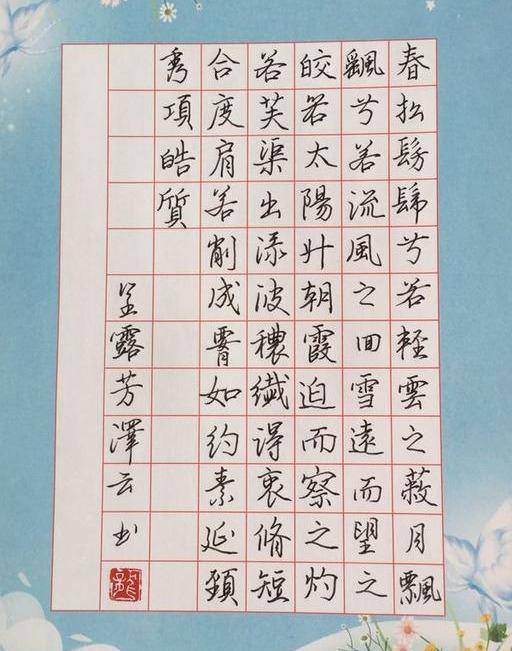 春松髣髴兮若輕雲之蔽月飄
颻兮若流風之回雪遠而望之
皎若太陽升朝霞迫而察之灼
若芙渠出淥波穠纖得衷脩短
合度肩若削成腰如約素延頸
秀項皓質
呈露芳澤云书